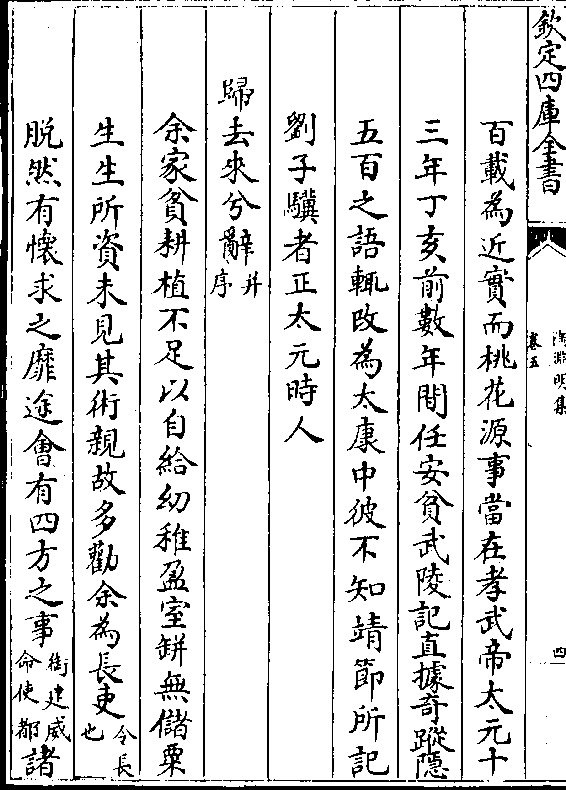 欽定四庫全書
陶淵明集
卷五
四
百載為近實而桃花源事當在孝武帝太元十
三年丁亥前數年間任安貧武陵記直據奇蹤隱
五百之語輒改為太康中彼不知靖節所記
劉子驥者正太元時人
歸去來兮辭并序
余家貧耕植不足以自給幼稚盈室缾無儲粟
生生所資未見其術親故多勸余為長吏令長也
脫然有懷求之靡途會有四方之事銜建威命使都諸